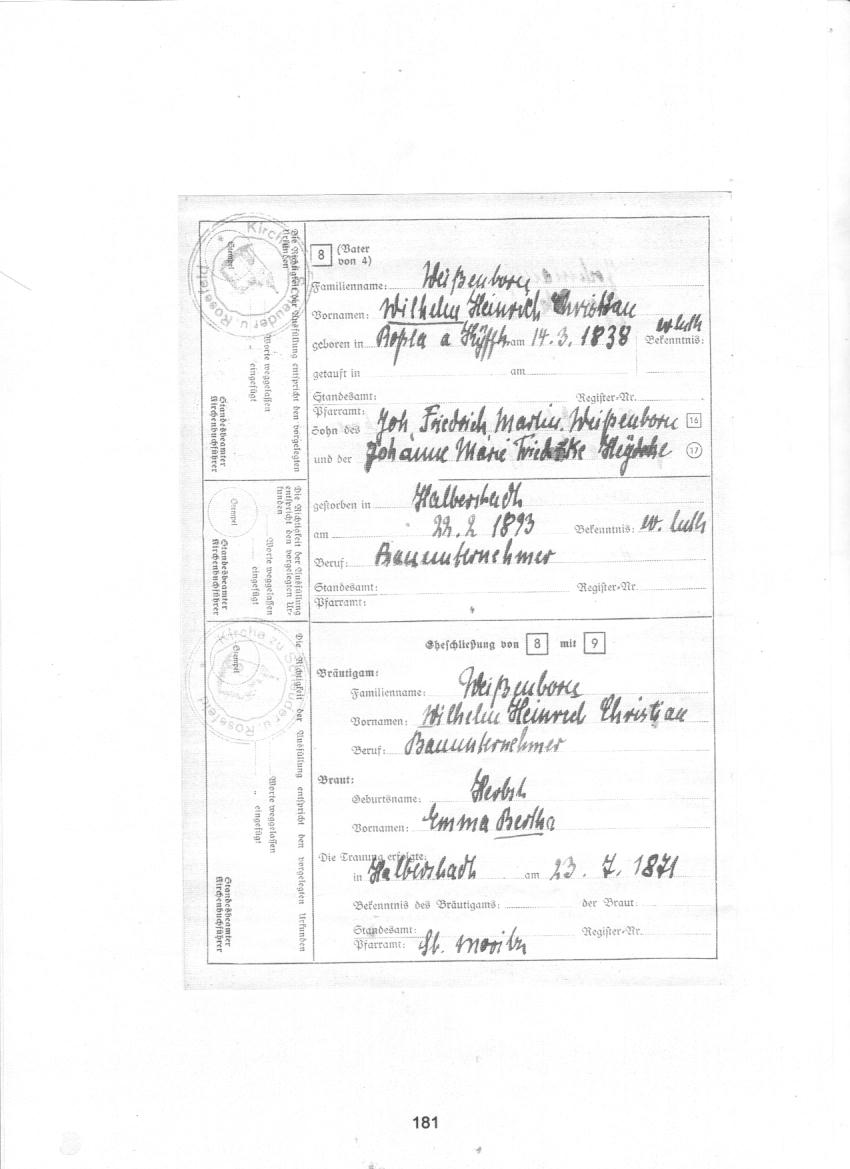 8 (Vater von 4)
Familienname: Weißenborn
Vornamen: Wilhelm Heinrich Christian
geboren in Roßla a Kyffh. am 14.3.1838 Bekenntnis: ev luth
getauft in am
Standesamt: Register-Nr.
Pfarramt:
Sohn des Joh Friedrich Martin Weißenborn 16
und der Johanne Marie 17
gestorben in Halberstadt
am 22.2 1893 Bekenntnis: ev. luth
Beruf: Bauunternehmer
Standesamt: Register-Nr.
Pfarramt:
Eheschließung von 8 mit 9
Bräutigam:
Familienname: Weißenborn
Vornamen: Wilhelm Heinrich Christian
Beruf: Bauunternehmer
Braut:
Geburtsname: Herbst
Vornamen: Emma Bertha
Die Trauung erfolgte:
in Halberstadt am 23. 7. 1871
Bekenntnis des Bräutigams: der Braut:
Standesamt: Register-Nr.
Pfarramt: St. Moritz
Die Richtigkeit der Ausfüllung entspricht den vorgelegten Urkunden
Stempel
Worte weggelassen
" eingefügt
Standesbeamter
Kirchenbuchführer
Die Richtigkeit der Ausfüllung
entspricht den vorgelegten Ur-
kunden
Stempel
Worte weggelassen
eingefügt
Standesbeamter
Kirchenbuchführer
Die Richtigkeit der Ausfüllung entspricht den vorgelegten Urkunden
Stempel
Worte weggelassen
" eingefügt
Standesbeamter
Kirchenbuchführer
Kirche zu Scheuder u. Rosefeld
Kirche zu Scheuder u. Rosefeld
181